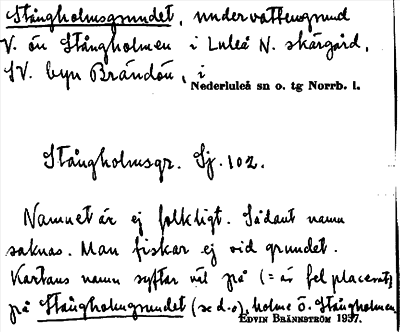 Stångholmsgrundet, undervattensgrund
V. ön Stångholmen i Luleå N. skärgård,
SV. byn Brändön, i
Nederluleå sn o. tg Norrb. l.
Stångholmsgr. Sj. 102.
Namnet är ej folkligt. Sådant namn
saknas. Man fiskar ej vid grundet.
Kartans namn syftar väl på (= är fel placerat)
på Stångholmsgrundet (se d.o), holme ö. Stångholmen.
EDVIN BRÄNNSTRÖM 1937.